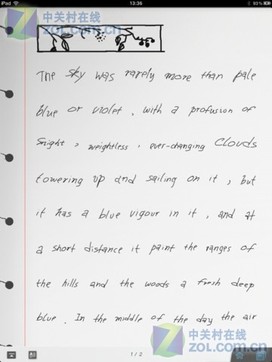 iPad
13:36
80%
中关村在线
ZOL.com.cn
The sky was rarely more than pale
blue or violet, with a profusion of
snight, weightless, ever-changing clouds
towering up and sailing on it, but
it has a blue vigour in it, and at
a short distance it paint the ranges of
the hills and the woods a fresh deep
blue. In the middle of the day the air
1 / 2
中关村在线
ZOL.com.cn